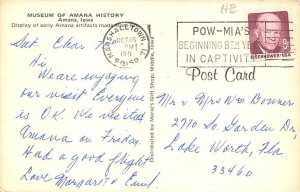 HE
MUSEUM OF AMANA HISTORY
Amana, Iowa
Display of early Amana artifacts made
MARSHALLTOWN,
OCT 18
PM
1971
50158
POW-MIA'S
BEGINNING 8TH YEAR
IN CAPTIVITY
EISENHOWER·USA
Post Card
Sat. Eher
Hi
We are enjoying
our visit Everyone
is OK. We visited
Amana on Friday.
Had a good flight
Love Margaret & Emil
Distributed by Marie's Gift Shop,
Mr & Mrs Wm Bowers
2770 So Garden Dr
Lake Worth, Fla
33460